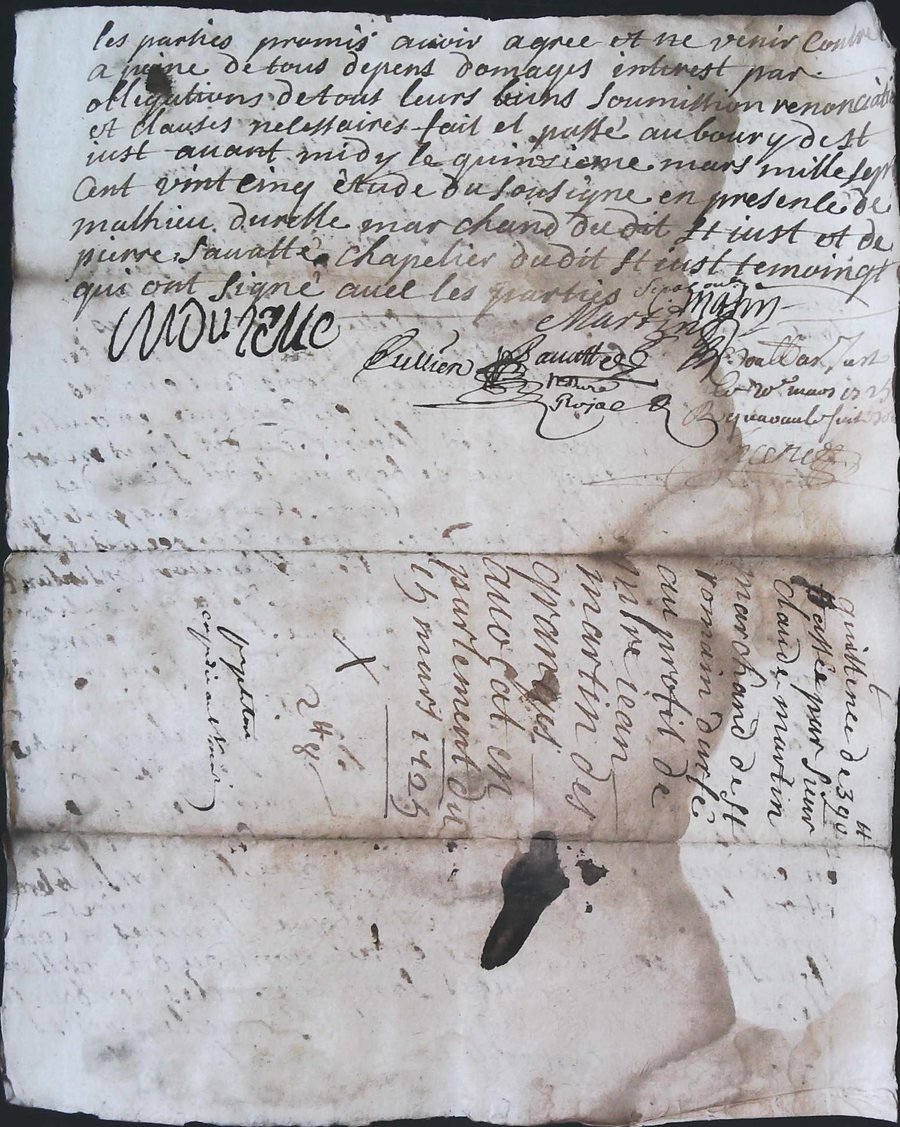 les parties promis avoir agree et ne venir Contre
a peine de tous depens domages interest par
obligations de tous leurs biens Soumission renonciation
et clauses necessaires fait et passé au bourg de st
just avant midy le quinsieme mars mille sept
Cent vint cinq étude du Sousigne en presence de
mathieu durelle marchand dudit st just et de
pierre Sauatté chapelier dudit st just temoingt
qui ont signé avec les parties
martin
Martin
MDurelle
Jullien
Sauatté
notaire
Royal
mars 1725
quittance de 390 tt
passée par Sieur
Claude martin
marchand de st
romain durfé
au profit de
mtre iean
martin des
granges
avocat en
parlement du
15 mars 1725
X
248